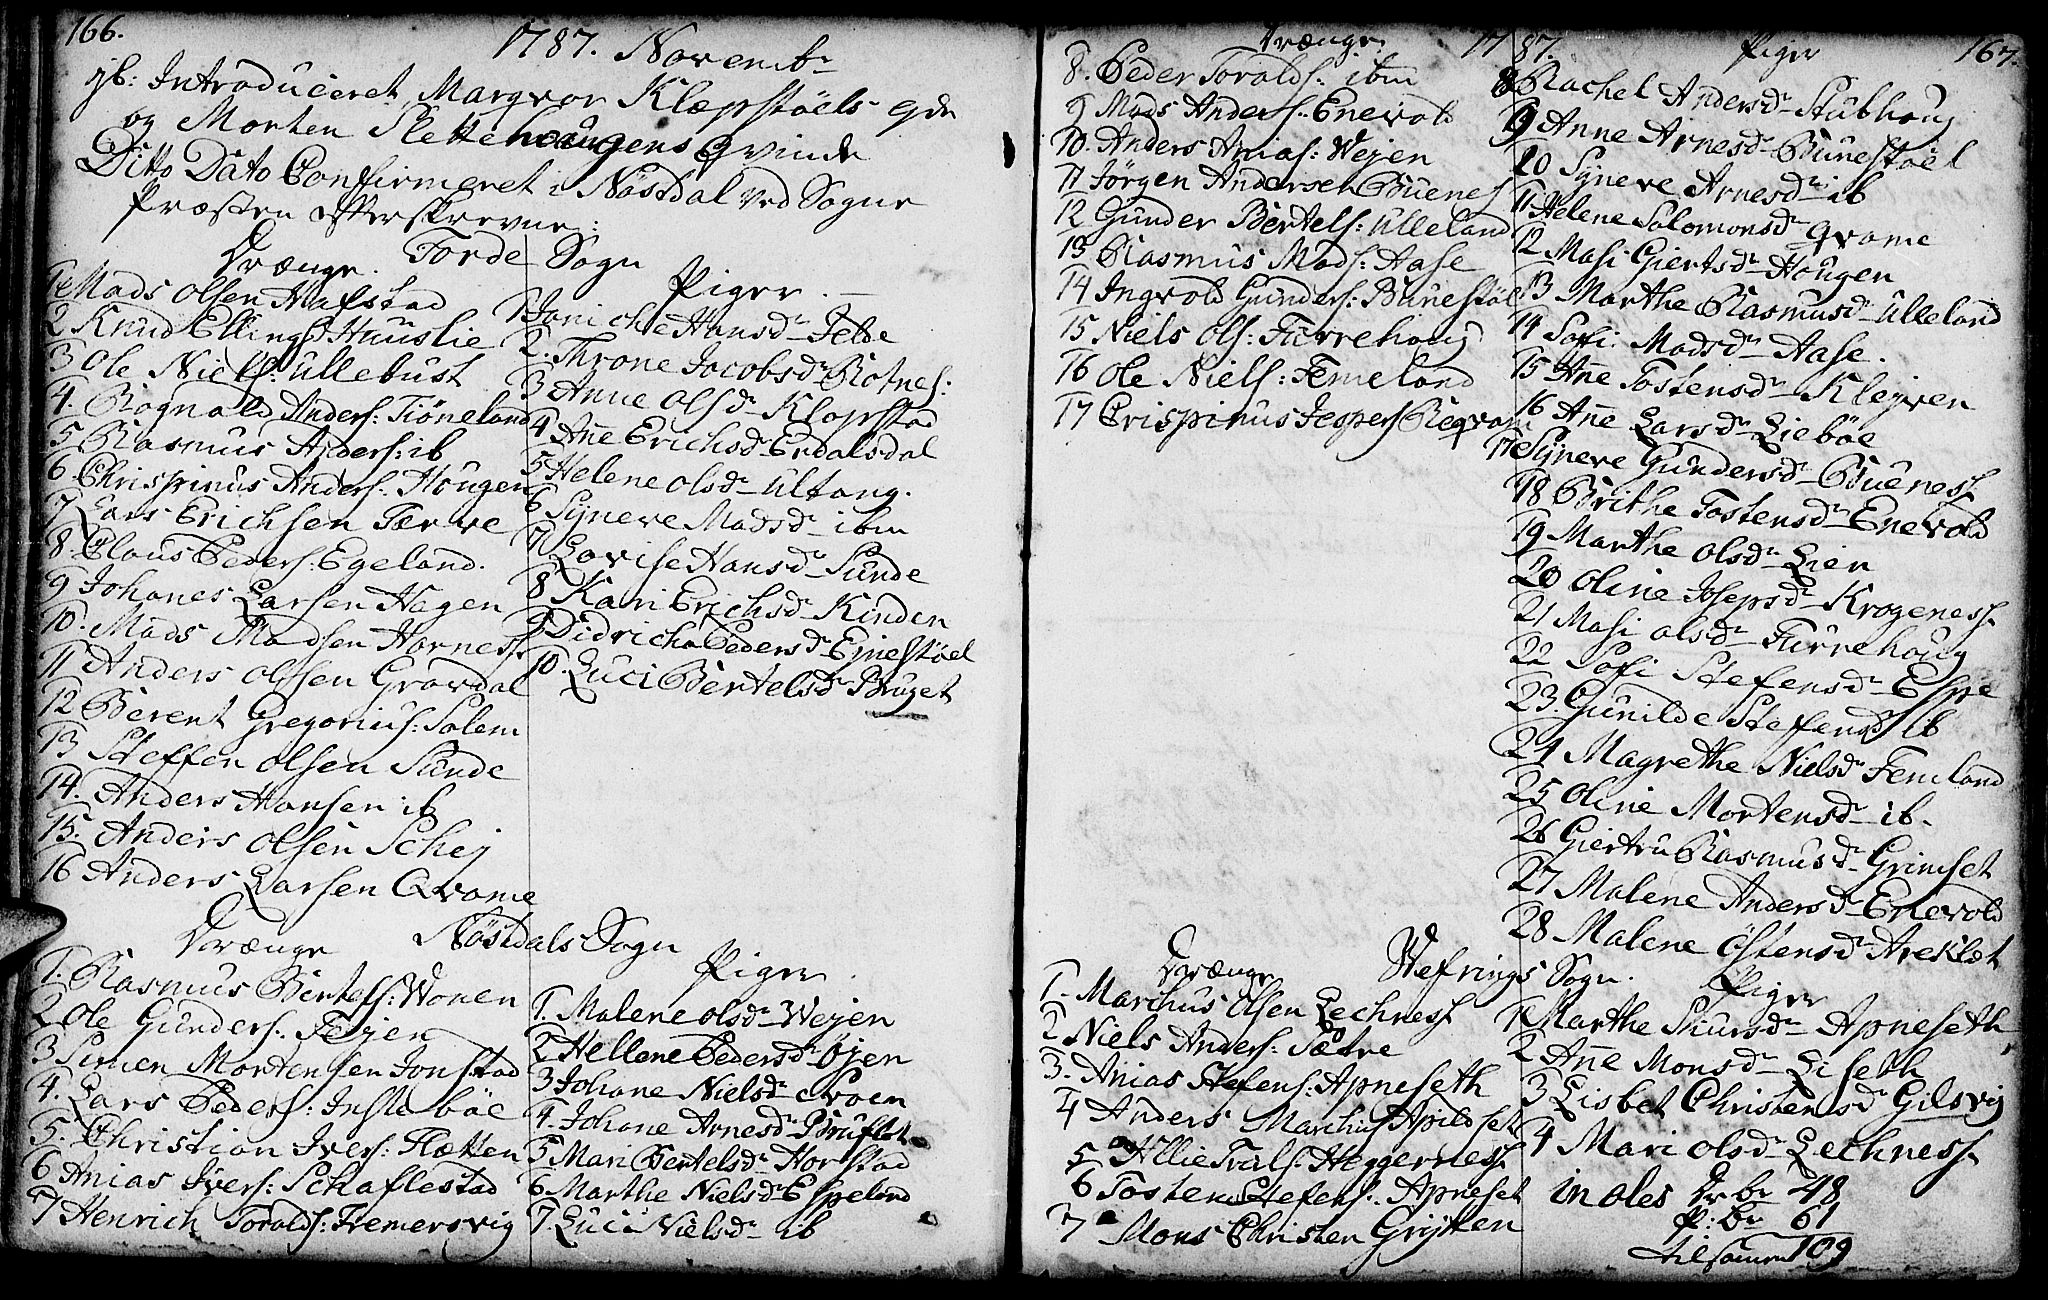 166.
1787. Novembr
jb: Introduceret Margvor Klæpstöels qde
og Morten Slettehougens Qvinde
Ditto Dato Confirmeret i Nöstdal ved Sogne
Præsten efterskrevne:
Förde Sogn
Drænge.
1 Mads Olsen Hafstad
2 Knud Ellings: Huuslie
3 Ole Niels: Ullebust
4. Rognald Anders: Tiöneland
5 Rasmus Anders: ib
6. Chrispinus Anders: Hougen
7 Lars Erichsen Færve
8. Claus Peders: Egeland.
9 Johanes Larsen Hagen
10. Mads Madsen Hornes
11 Anders Olssen Grovdal
12 Berent Gregorius: Solem
13 Steffen Olsen Sunde
14. Anders Hansen ib
15. Anders Olsen Schej
16 Anders Larsen Qvame
Piger.
1 Janiche Hansdr Felde
2. Throne Jacobsdr Rotnes:
3 Anne Olsdr Klopstad
4 Ane Erichsdr Erdalsdal
5 Helene Olsdr Ultang.
6 Synneve Madsdr ibm
7 Lovise Hansdr Sunde
8 Kari Erichsdr Kinden
9 Didricha Pedersdr Ejnestöel
10. Luci Bertelsdr Bruget
Nöstdals Sogn
Drænge
1. Rasmus Bertels: Wonen
2 Ole Gunders: Feyen
3 Simen Mortensen Jonstad
4. Lars Peders: Insteböe
5. Christian Ivers: Flætten
6 Anias Ivers: Schaflestad
7 Henrich Toralds: Fremersvig
Piger
1. Malene Olsdr Wejen
2 Hellene Pedersdr Öjen
3 Johane Nielsdr Croen
4. Johane Arnesdr Bruflot
5 Mari Bertelsdr Horstad
6. Marthe Nielsdr Espeland
7. Luci Nielsdr ib
1787.
167.
Drænge.
8. Peder Toralds: ibm
9 Mads Anders: Enevold
10. Anders Anias: Wejen
11 Jörgen Andersen Buenes
12 Gunder Bertels: Ulleland
13 Rasmus Mads: Aase
14 Ingvold Gunders: Bunestöl
15 Niels Ols: Furrehoug
16 Ole Niels: Femeland
17 Crispinus Jespers Reqvam
Piger
8 Rachel Andersdr Stubhoug
9 Anne Arnesdr Bunestöel
10 Synneve Arnesdr ib
11 Helene Salomonsdr Qvame
12 Masi Giertsdr Hougen
13 Marthe Rasmusdr Ulleland
14 Soffi Madsdr Aase.
15 Ane Tostensdr Klejven
16 Ane Larsdr Lieböe
17 Synneve Gundersdr Buenes
18 Brithe Tostensdr Enevold
19 Marthe Olsdr Lien
20 Oline Josepsdr Krogeness
21 Masi Olsdr Furrehoug
22 Sofi Stefensdr Espe
23 Gunilde Steffensdr ib
24 Magrethe Nielsdr Femeland
25 Oline Mortensdr ib.
26 Giertru Rasmusdr Grimset
27 Malene Andersdr Enevold
28 Malene Östensdr Areklet
Wefrings Sogn.
Drænge
1. Marchus Olsen Lechness
2 Niels Anders: Sætre
3. Anias Stefens: Apneseth
4 Anders Marchus Apildset
5 Ellie Trals: Heggerness
6 Tosten Stefens: Apneset
7 Mons Christen Grytten
Piger
1 Marthe Siursdr Apneseth
2 Ane Monsdr Liseth
3 Lisbet Christensdr Gilsvig
4 Mari Olsdr Lechness
in ales Dr br 48
P: br 61
tilsamen 109